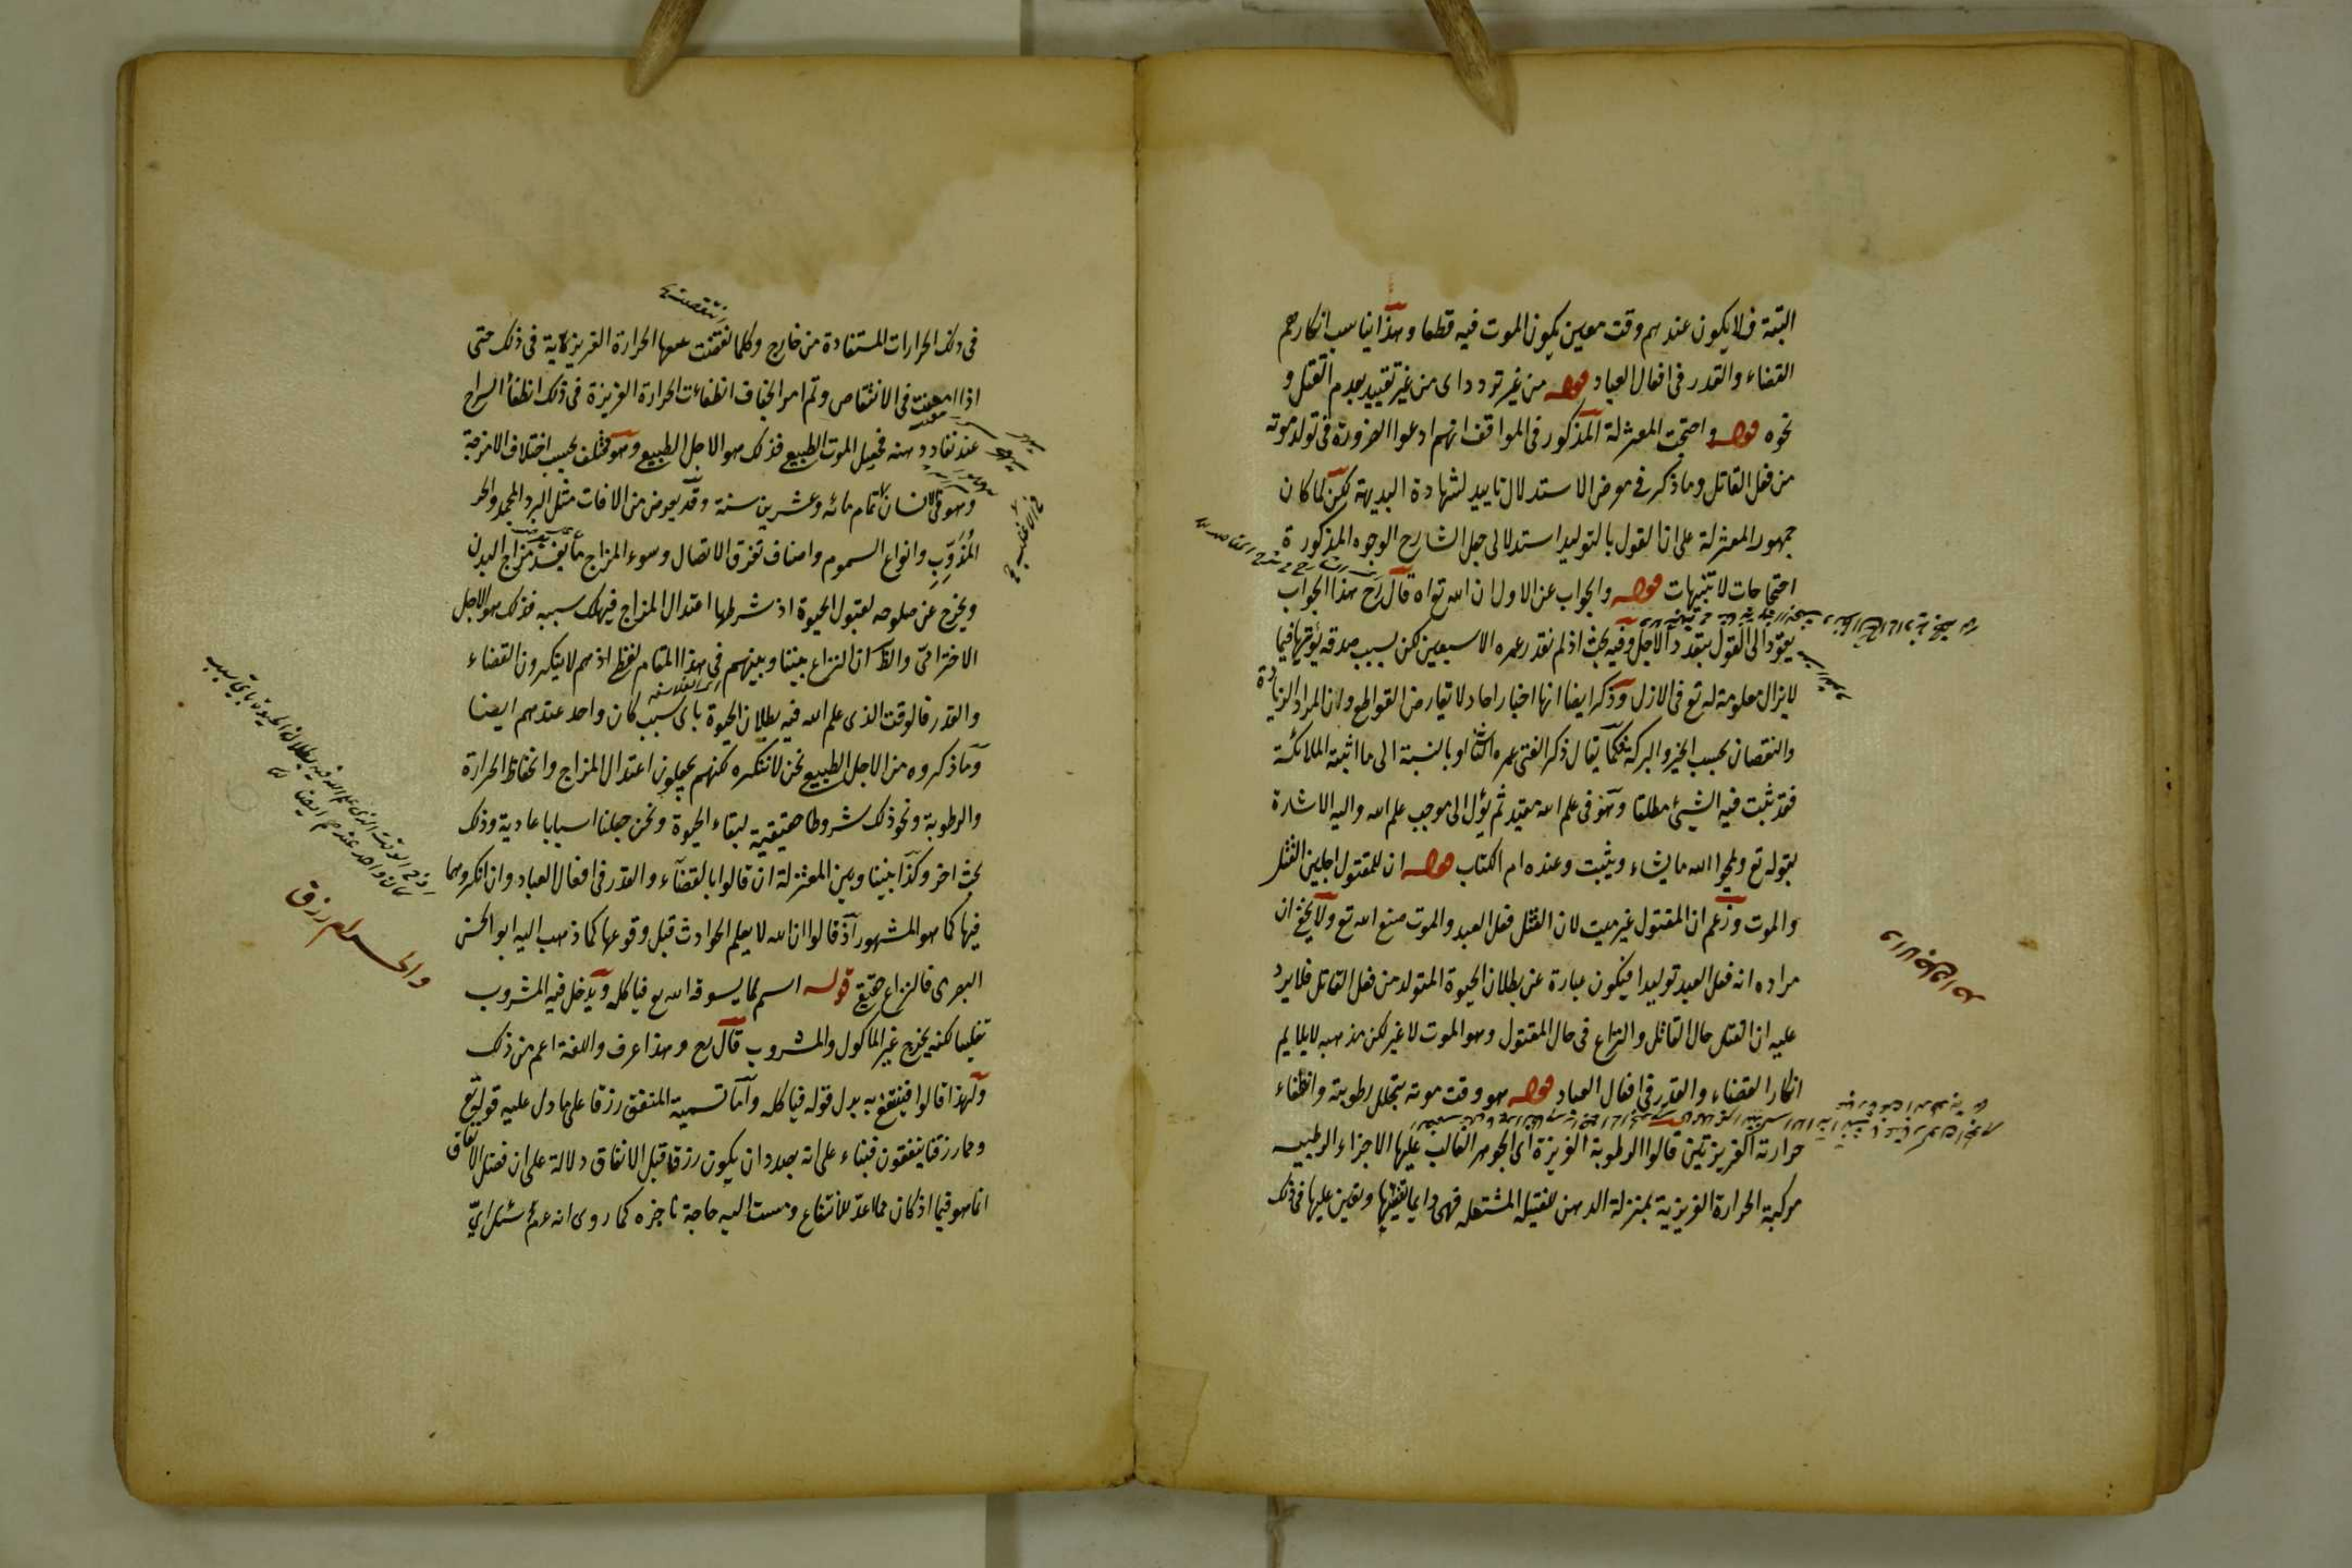 البتة فلا يكون عندهم وقت معين يكون الموت فيه قطعا وهذا يناسب انكارهم
القضاء والقدر في افعال العباد قوله من غير تردد اى من غير تقييد بعدم القتل و
نحوه قوله واحتجت المعتزلة المذكور في المواقف انهم ادعوا الضرورة في تولد موته
من فعل القاتل وما ذكر في معرض الاستدلال تاييد لشهادة البديهة لكن لما كان
جمهور المعتزلة على ان القول بالتوليد استدلالى جعل الشارح الوجوه المذكورة
احتجاجات لا تنبيهات قوله والجواب عن الاول ان الله تع اه قال رح هذا الجواب
يعود الى القول بتعدد الاجل وفيه بحث اذ لم نقدر عمره الا سبعين لكن بسبب صدقه يؤتيها فيما
لا يزال معلومة له تع في الازل وذكر ايضا انها اخبار احاد لا تعارض القواطع ولان المراد الزيادة
والنقصان بحسب الخير والبركة كما يقال ذكر الفتى عمره الثانى او بالنسبة الى ما اثبته الملائكة
فقد ثبت فيه الشيئ مطلقا وهو في علم الله مقيد ثم يؤل الى موجب علم الله واليه الاشارة
بقوله تع ويمحوا الله ما يشاء ويثبت وعنده ام الكتاب قوله ان للمقتول اجلين القتل
والموت وزعم ان المقتول غير ميت لان القتل فعل العبد والموت صنع الله تع ولا يخفى ان
مراده انه فعل العبد توليدا فيكون عبارة عن بطلان الحيوة المتولد من فعل القاتل فلا يرد
عليه ان القتل حال القاتل والنزاع في حال المقتول وهو الموت لا غير لكن مذهبه لا يلايم
انكار القضاء والقدر في افعال العباد قوله هو وقت موته بتحلل رطوبته وانطفاء
حرارته الغريزيتين قالوا الرطوبة الغريزة اى الجوهر الغالب عليها الاجزاء الرطبيه
مركبة الحرارة الغريزية بمنزلة الدهن للفتيلة المشتعله فهى دايما تفنيها وتعين عليها في ذلك
والاجل واحد
انتقصت
في ذلك الحرارات المستفادة من خارج وكلما نقصت معها الحرارة الغريزية في ذلك حتى
اذا امعنت في الانتقاص وتم امر الجفاف انطفاءت الحرارة الغريزة في ذلك انطفأ السراج
عند نفاد دهنه فحصل الموت الطبيعى فذلك هو الاجل الطبيعى وهو مختلف بحسب اختلاف الامزجة
وهو في الانسان تمام مائه وعشرين سنة وقد يعرض من الافات مثل البرد المجمد والحر
المُذَوِّبِ وانواع السموم واصناف تفرق الاتصال وسوء المزاج ما يفسد مزاج البدن
ويخرج عن صلوحه لقبول الحيوة اذ شرطها اعتدال المزاج فيهلك بسببه فذلك هو الاجل
الاخترامىّ والظ ان النزاع بيننا وبينهم في هذا المقام لفظ اذ هم لا ينكرون القضاء
والقدر فالوقت الذى علم الله فيه بطلان الحيوة باى سبب كان واحد عندهم ايضا
وما ذكروه من الاجل الطبيعى نحن لا ننكره لكنهم يجعلون اعتدال المزاج وانحفاظ الحرارة
والرطوبة ونحو ذلك شروطا حقيقية لبقاء الحيوة ونحن جعلنا اسبابا عادية وذلك
بحث اخر وكذا بيننا وبين المعتزلة ان قالوا بالقضآء والقدر في افعال العباد وان انكروهما
فيها كما هو المشهور اذ قالوا ان الله لا يعلم الحوادث قبل وقوعها كما ذهب اليه ابو الحسن
البصرى فالنزاع حقيقى قوله اسم لما يسوقه الله تع فياكله ويدخل فيه المشروب
تغليبا لكنه يخرج غير الماكول والمشروب قال رح وهذا عرف واللغة اعم من ذلك
ولهذا قالوا فينتفع به بدل قوله فياكله واما تسمية المنفق رزقا على ما دل عليه قوله تع
ومما رزقنا ينفقون فبناء على انه بصدد ان يكون رزقا قبل الانفاق دلالة على ان فضل الانفاق
انما هو فيما اذ كان مما اعد للانتفاع ومست اليه حاجة ناجزه كما روى انه عم سئل اىّ
اذ في الوقت الذى علم الله فيه بطلان الحيوة باى سبب
كان واحد عندهم ايضا
والحرام رزق